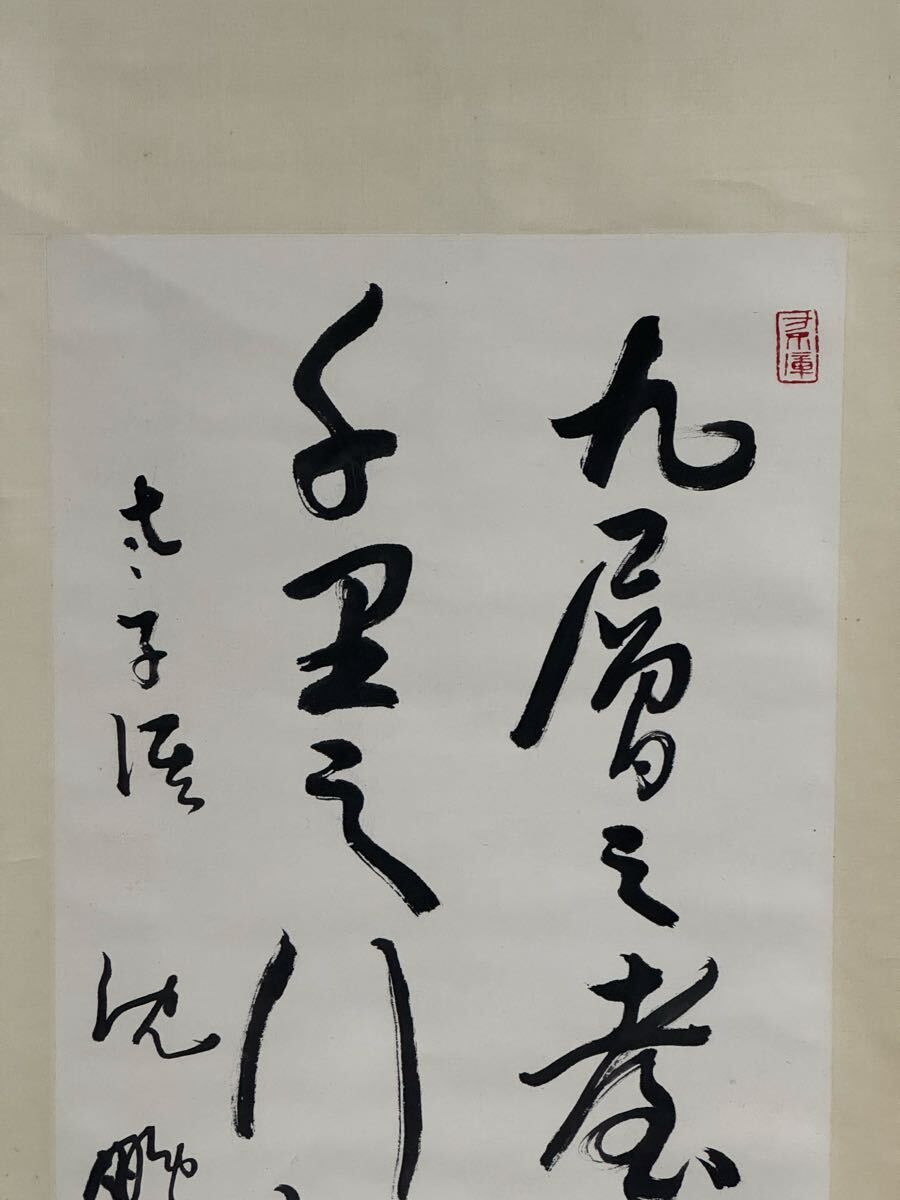 九層之臺
千里之行
老子語
沈鵬